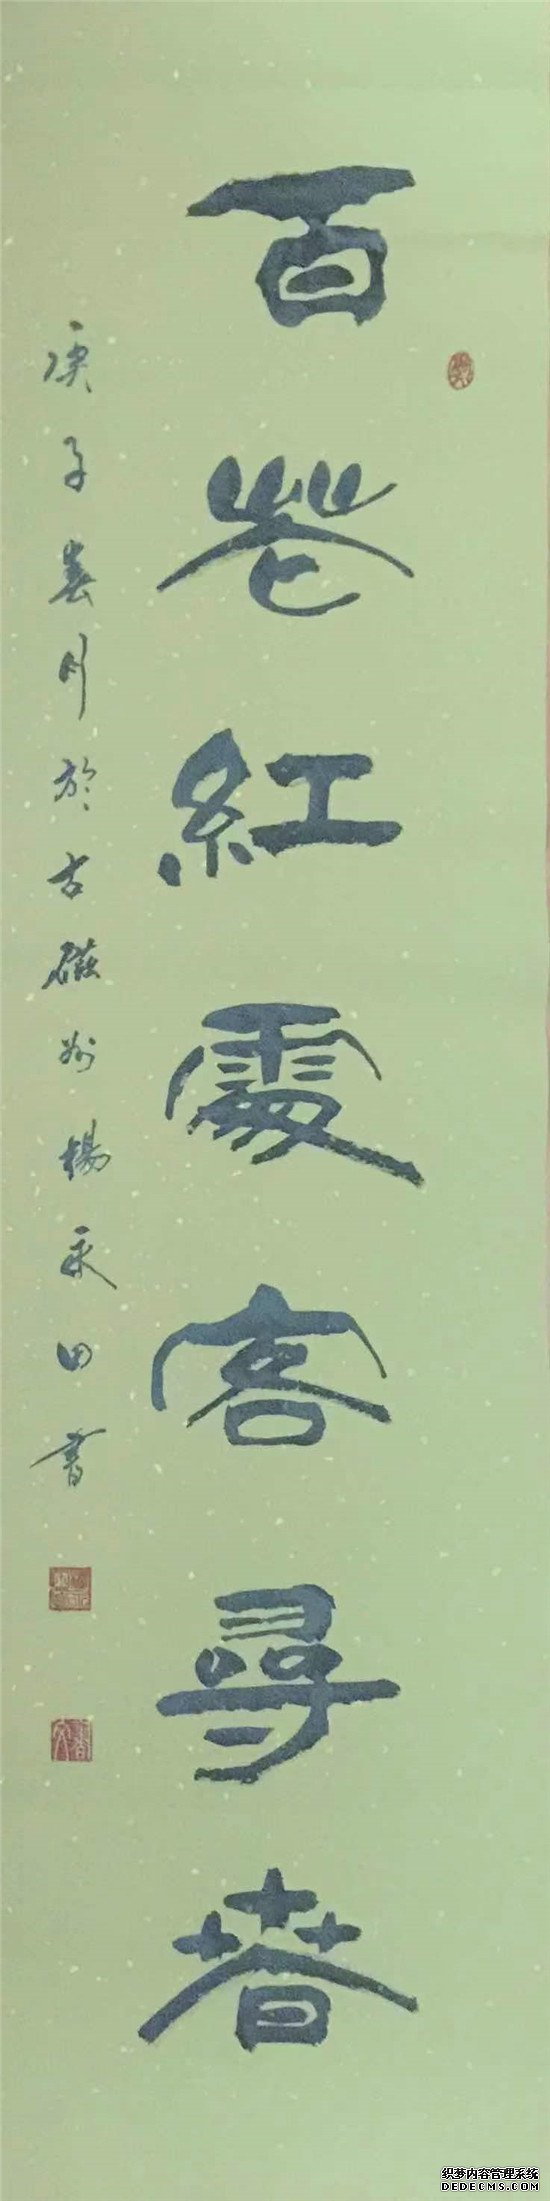 百花紅處客尋春
庚子春月於古磁州楊永田書
织梦内容管理系统
DEDECMS.COM